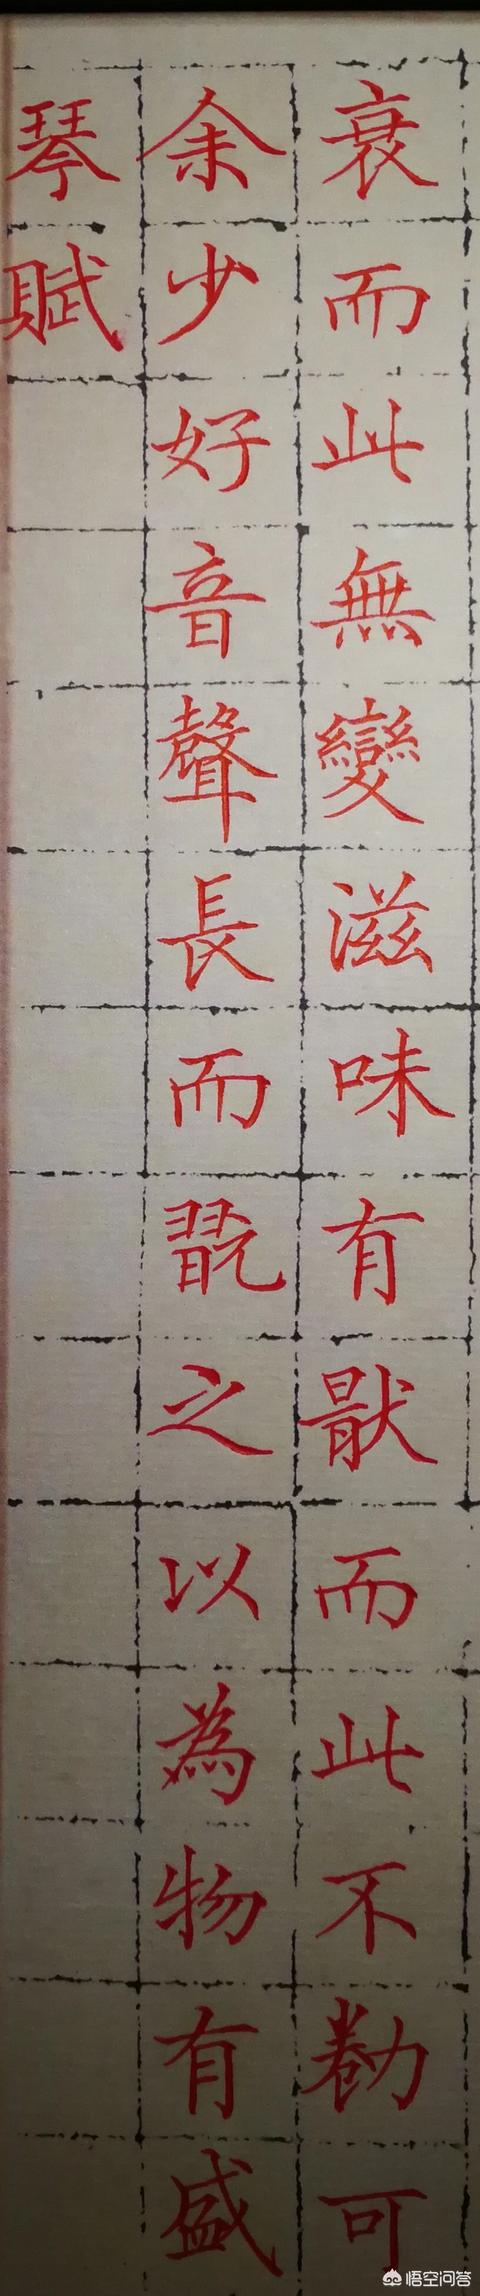 琴賦
余少好音聲長而翫之以為物有盛
衰而此無變滋味有猒而此不勌可
悟空问答